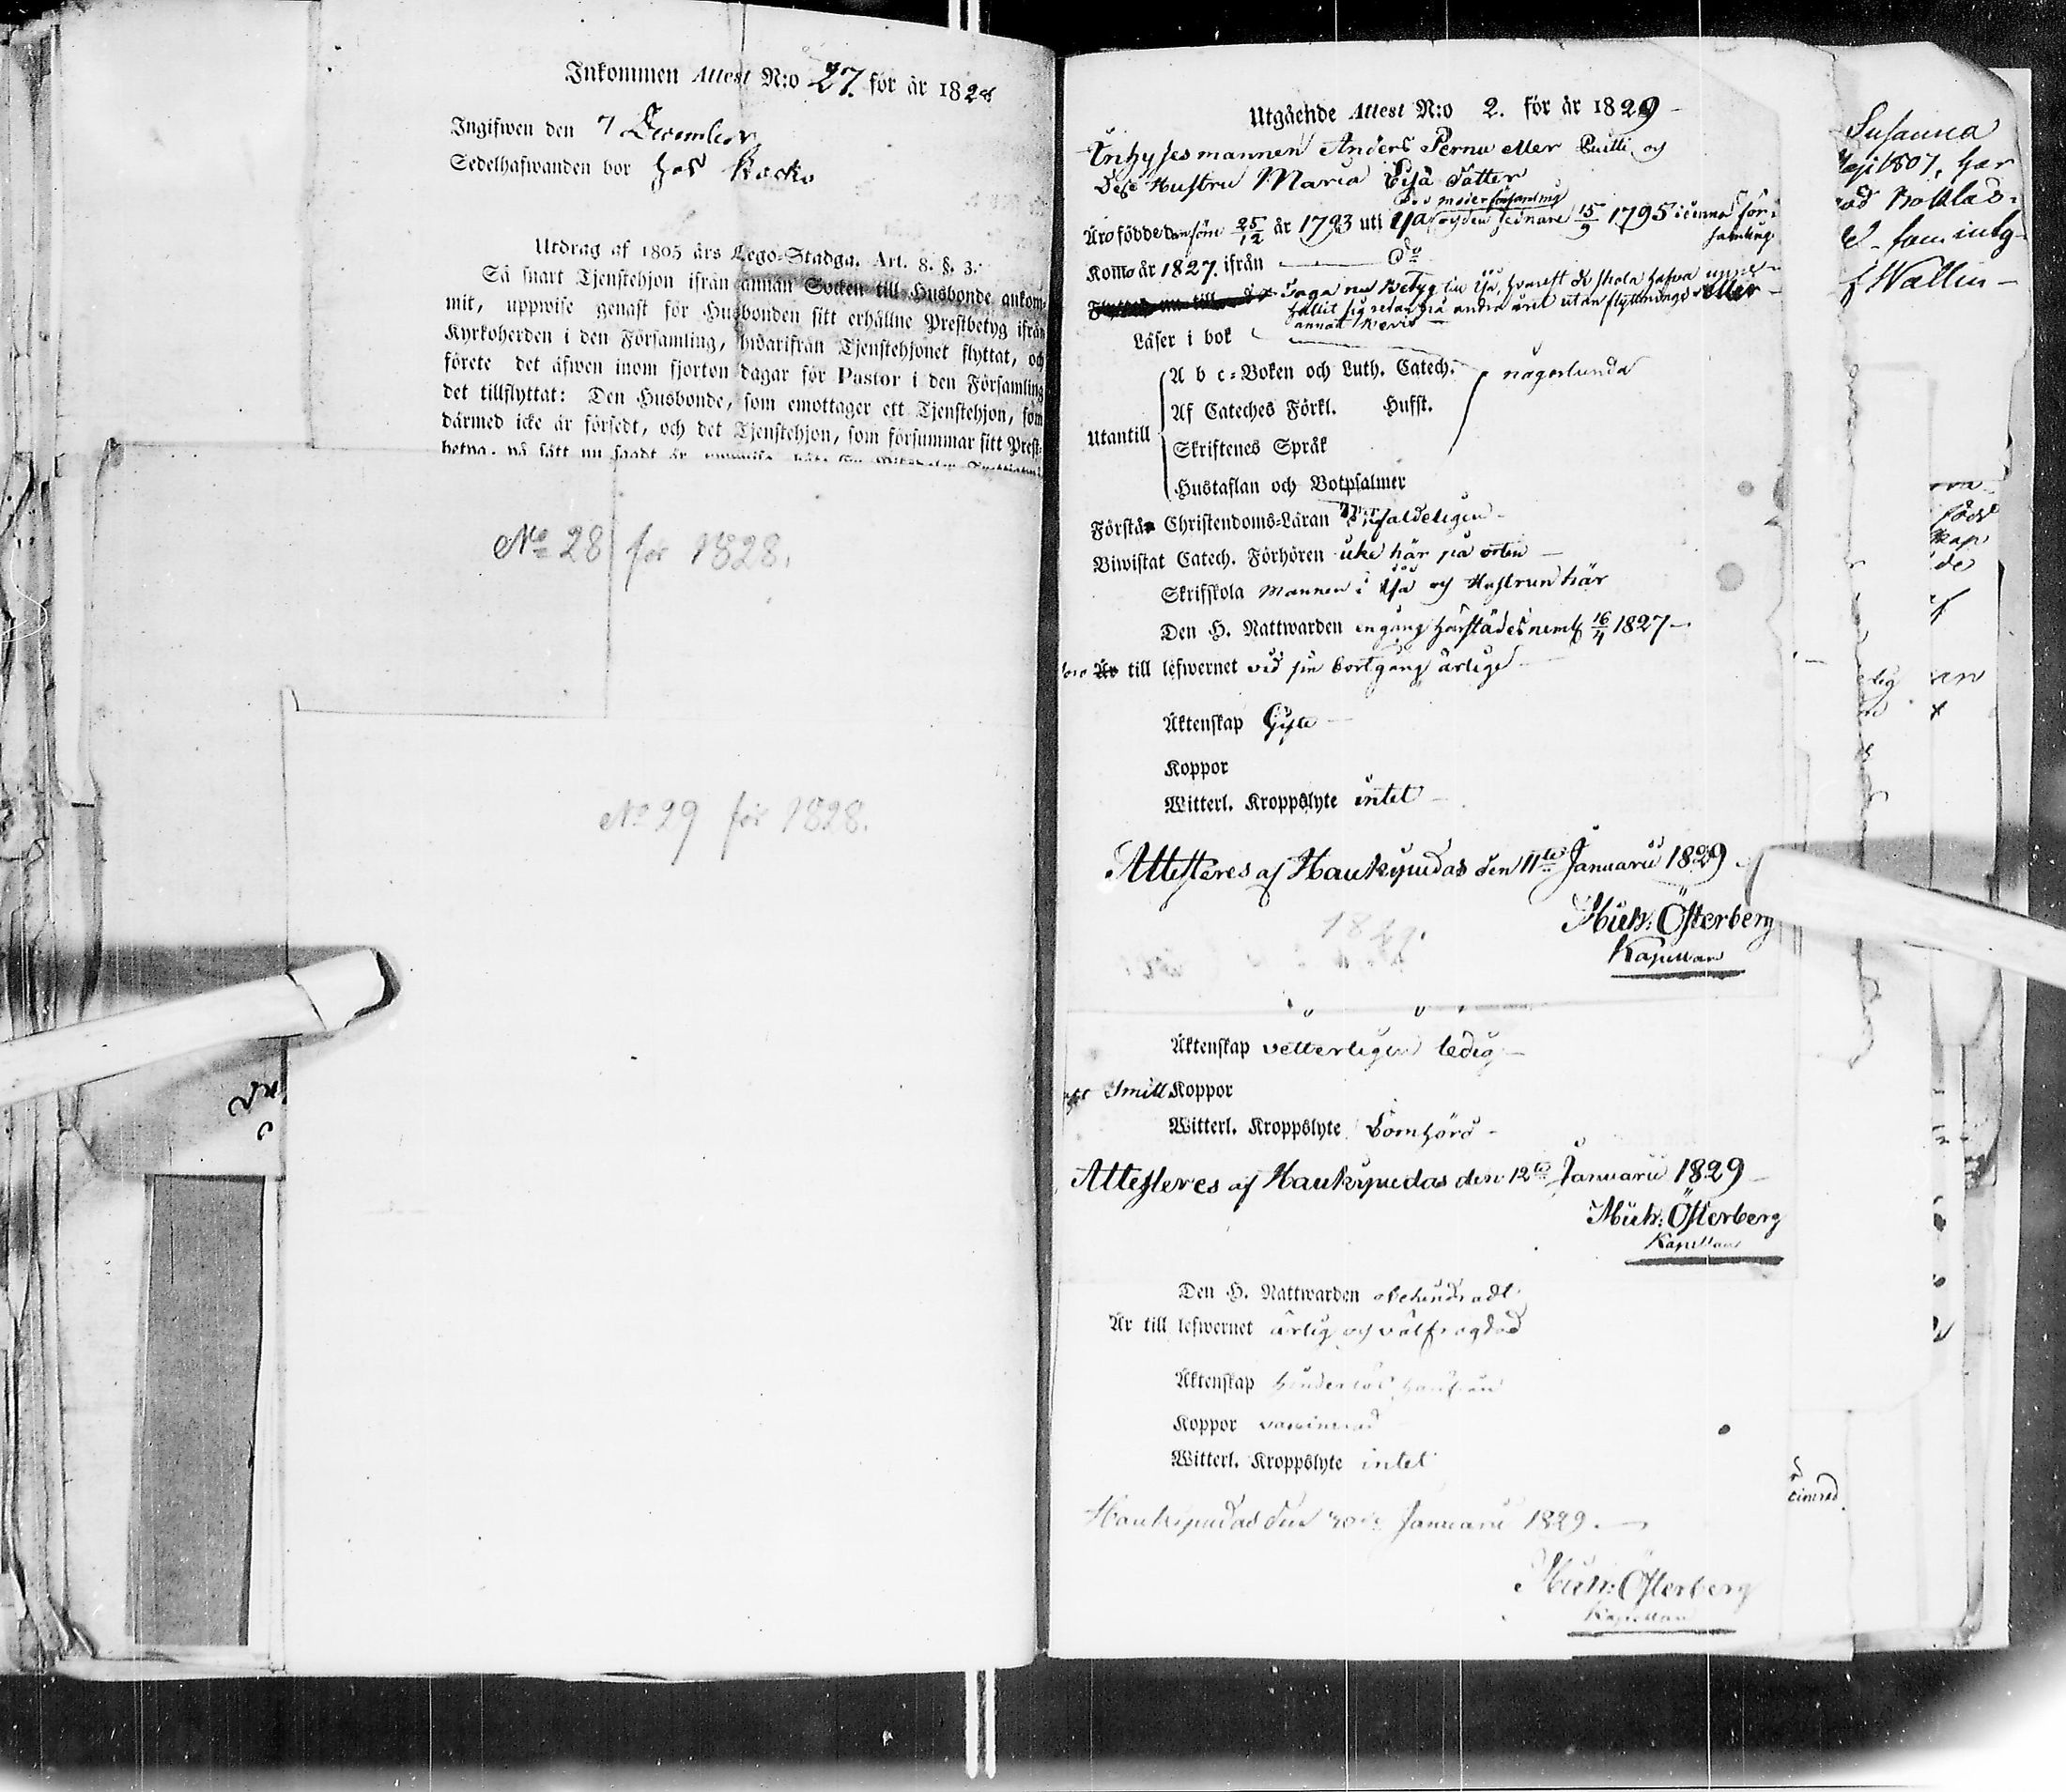 Inkommen Attest N:o 27. för år 1828
Ingifwen den 7 December
Sedelhafwanden bor hos Kocko
Utdrag af 1805 års Lego-Stadga. Art. 8. §. 3.
Så snart Tjenstehjon ifrån annan Socken till Husbonde ankom-
mit, uppwise genast för Husbonden sitt erhållne Prestbetyg ifrån
Kyrkoherden i den Församling, hwarifrån Tjenstehjonet flyttat, och
förete det äfwen inom fjorton dagar för Pastor i den Församling
det tillflyttat: Den Husbonde, som emottager ett Tjenstehjon, som
därmed icke är försedt, och det Tjenstehjon, som försummar sitt Prest-
betyg, på sätt nu sagdt är
No 28 för 1828.
No 29 för 1828.
Utgående Attest N:o 2. för år 1829
Inhysesmannen Anders Pernu eller och
Dess Hustru Maria Dotter
moderförsamling
Äro födde den förre 25/12 år 1793 uti och den sednare 15/9 1795 i denna för-
samling
Komo år 1827. ifrån do
Taga nu Betyg till hwarest de skola hafwa uppe-
hållit sig redan på andra året utan flyttnings eller
annat bewis
Läser i bok
Utantill
A b c-Boken och Luth. Catech. någorlunda
Af Cateches Förkl. Husst.
Skriftenes Språk
Hustaflan och Botpsalmer
Förstå Christendoms-Läran enfaldeligen
Biwistat Catech. Förhören icke här på orten
Skrifskola Mannen i och Hustrun här
Den H. Nattwarden en gång härstädes neml. 16/4 1827
till lefwernet vid sin bortgång ärlige
Äktenskap Gifte
Koppor
Witterl. Kroppslyte intet
Attesteres af Haukipudas den 11te Januarii 1829
Mich: Österberg
Kapellan
Äktenskap vetterligen ledig
Koppor
Witterl. Kroppslyte Lomhörd
Attesteres af Haukipudas den 12te Januarii 1829
Mich: Österberg
Kapellan
Den H. Nattwarden obehindradt
Är till lefwernet ärlig och välfrägdad
Äktenskap hinderlös härifrån
Koppor vaccinerad
Witterl. Kroppslyte intet
Haukipudas den Januarii 1829.
Mich: Österberg
Kapellan
Susanna
1807, har
f Wallin